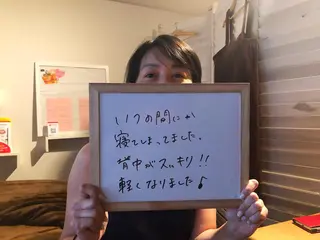 いつの間にか
寝てしまってました。
背中がスッキリ!!
軽くなりました♪